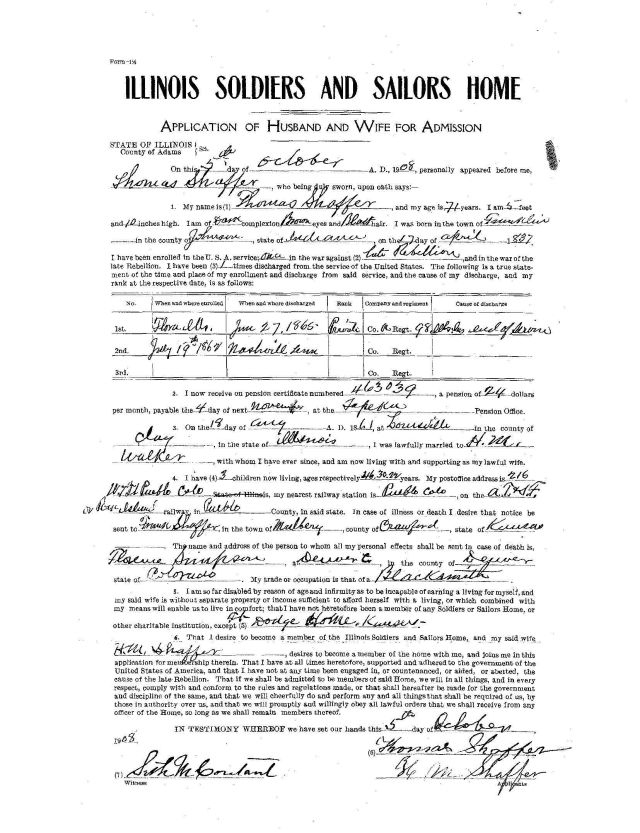 Form-1½
ILLINOIS SOLDIERS AND SAILORS HOME
APPLICATION OF HUSBAND AND WIFE FOR ADMISSION
STATE OF ILLINOIS } ss.
County of Adams
On this 5th day of October A. D., 1908, personally appeared before me,
Thomas Shaffer, who being duly sworn, upon oath says:—
1. My name is (1) Thomas Shaffer, and my age is 71 years. I am 5 feet
and 10 inches high. I am of Dark complexion Brown eyes and Black hair. I was born in the town of Franklin
in the county of Johnson, state of Indiana, on the 7 day of April 1837.
I have been enrolled in the U. S. A. service once in the war against (2) Late Rebellion, and in the war of the
late Rebellion. I have been (3) 1 times discharged from the service of the United States. The following is a true state-
ment of the time and place of my enrollment and discharge from said service, and the cause of my discharge, and my
rank at the respective date, is as follows:
No. When and where enrolled When and where discharged Rank Company and regiment Cause of discharge
1st. Flora Ills. June 27, 1865 Private Co. Regt. 98 Ills end of Service
2nd. July 19th 1862 Nashvill Tenn Co. Regt.
3rd. Co. Regt.
2. I now receive on pension certificate numbered 463039, a pension of 24 dollars
per month, payable the 4 day of next November, at the Topeka Pension Office.
3. On the 18 day of Aug A. D. 1861, at Louisville in the county of
Clay, in the state of Illinois, I was lawfully married to H. M.
Walker, with whom I have ever since, and am now living with and supporting as my lawful wife.
4. I have (4) 3 children now living, ages respectively years. My postoffice address is 216
Pueblo Colo State of Illinois, my nearest railway station is Pueblo Colo, on the A. T & S. F.
or Rock Island railway, in Pueblo County, in said state. In case of illness or death I desire that notice be
sent to Shaffer, in the town of Mulberry, county of Crawford, state of Kansas
The name and address of the person to whom all my personal effects shall be sent in case of death is,
Florence Simpson, Denver C, in the county of Denver
state of Colorado. My trade or occupation is that of a Blacksmith
5. I am so far disabled by reason of age and infirmity as to be incapable of earning a living for myself, and
my said wife is without separate property or income sufficient to afford herself with a living, or which combined with
my means will enable us to live in comfort; that I have not heretofore been a member of any Soldiers or Sailors Home, or
other charitable institution, except (5) Ft Dodge Home, Kansas—
6. That I desire to become a member of the Illinois Soldiers and Sailors Home, and my said wife
H. M. Shaffer, desires to become a member of the home with me, and joins me in this
application for membership therein. That I have at all times heretofore, supported and adhered to the government of the
United States of America, and that I have not at any time been engaged in, or countenanced, or aided, or abetted, the
cause of the late Rebellion. That if we shall be admitted to be members of said Home, we will in all things, and in every
respect, comply with and conform to the rules and regulations made, or that shall hereafter be made for the government
and discipline of the same, and that we will cheerfully do and perform any and all things that shall be required of us, by
those in authority over us, and that we will promptly and willingly obey all lawful orders that we shall receive from any
officer of the Home, so long as we shall remain members thereof.
IN TESTIMONY WHEREOF we have set our hands this 5th day of October
1908.
(6) Thomas Shaffer
(7) Seth M Coutant H M. Shaffer
Witness Applicants